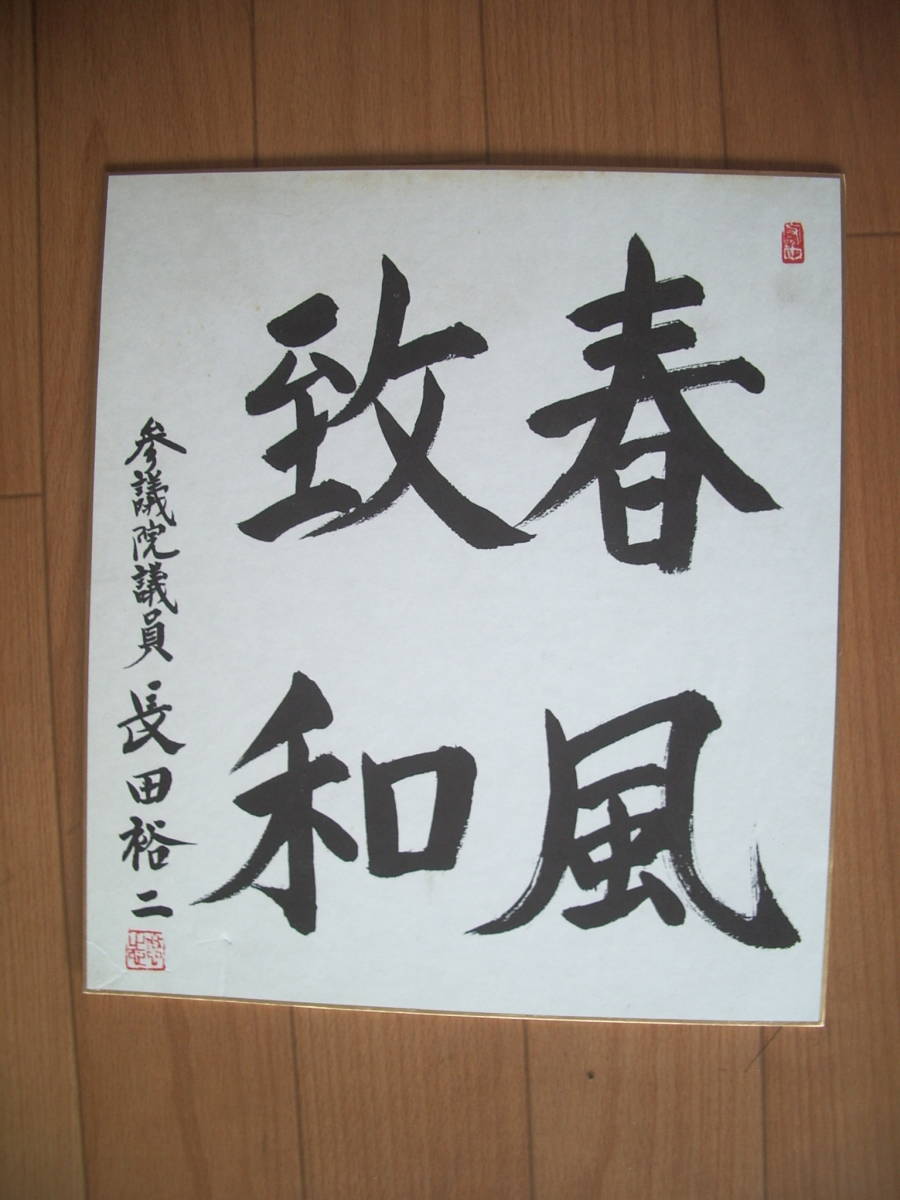 春風
致和
参議院議員 長田裕二